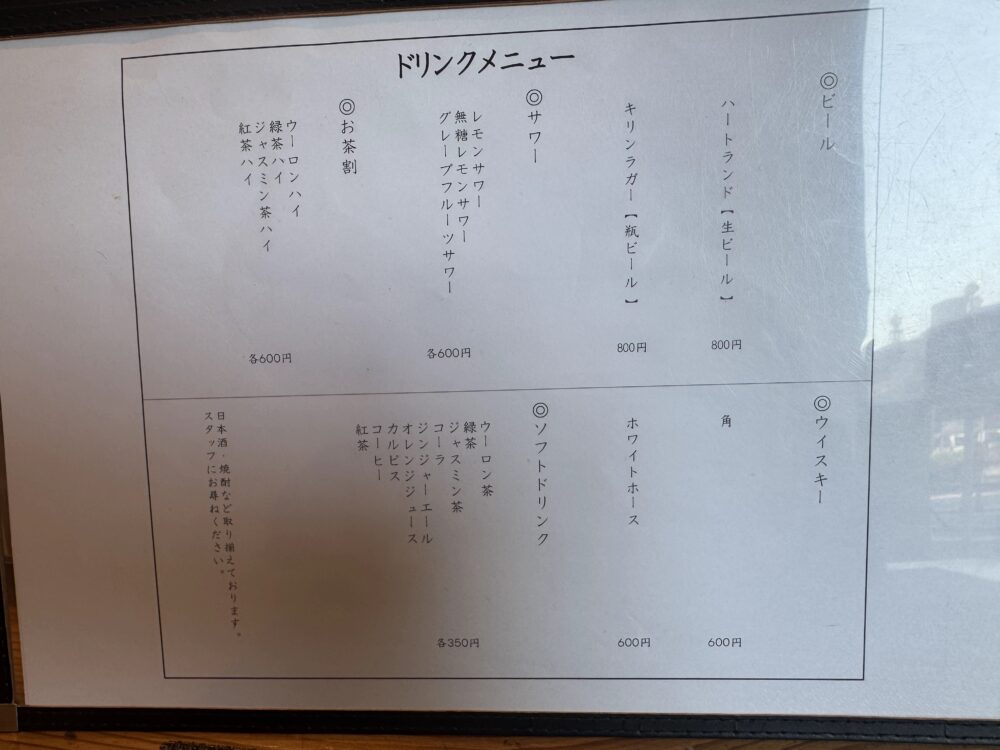 ドリンクメニュー
◎ビール
ハートランド【生ビール】
800円
キリンラガー【瓶ビール】
800円
◎サワー
レモンサワー
無糖レモンサワー
グレープフルーツサワー
各600円
◎お茶割
ウーロンハイ
緑茶ハイ
ジャスミン茶ハイ
紅茶ハイ
各600円
◎ウイスキー
角
600円
ホワイトホース
600円
◎ソフトドリンク
ウーロン茶
緑茶
ジャスミン茶
コーラ
ジンジャーエール
オレンジジュース
カルピス
コーヒー
紅茶
各350円
日本酒・焼酎など取り揃えております。
スタッフにお尋ねください。